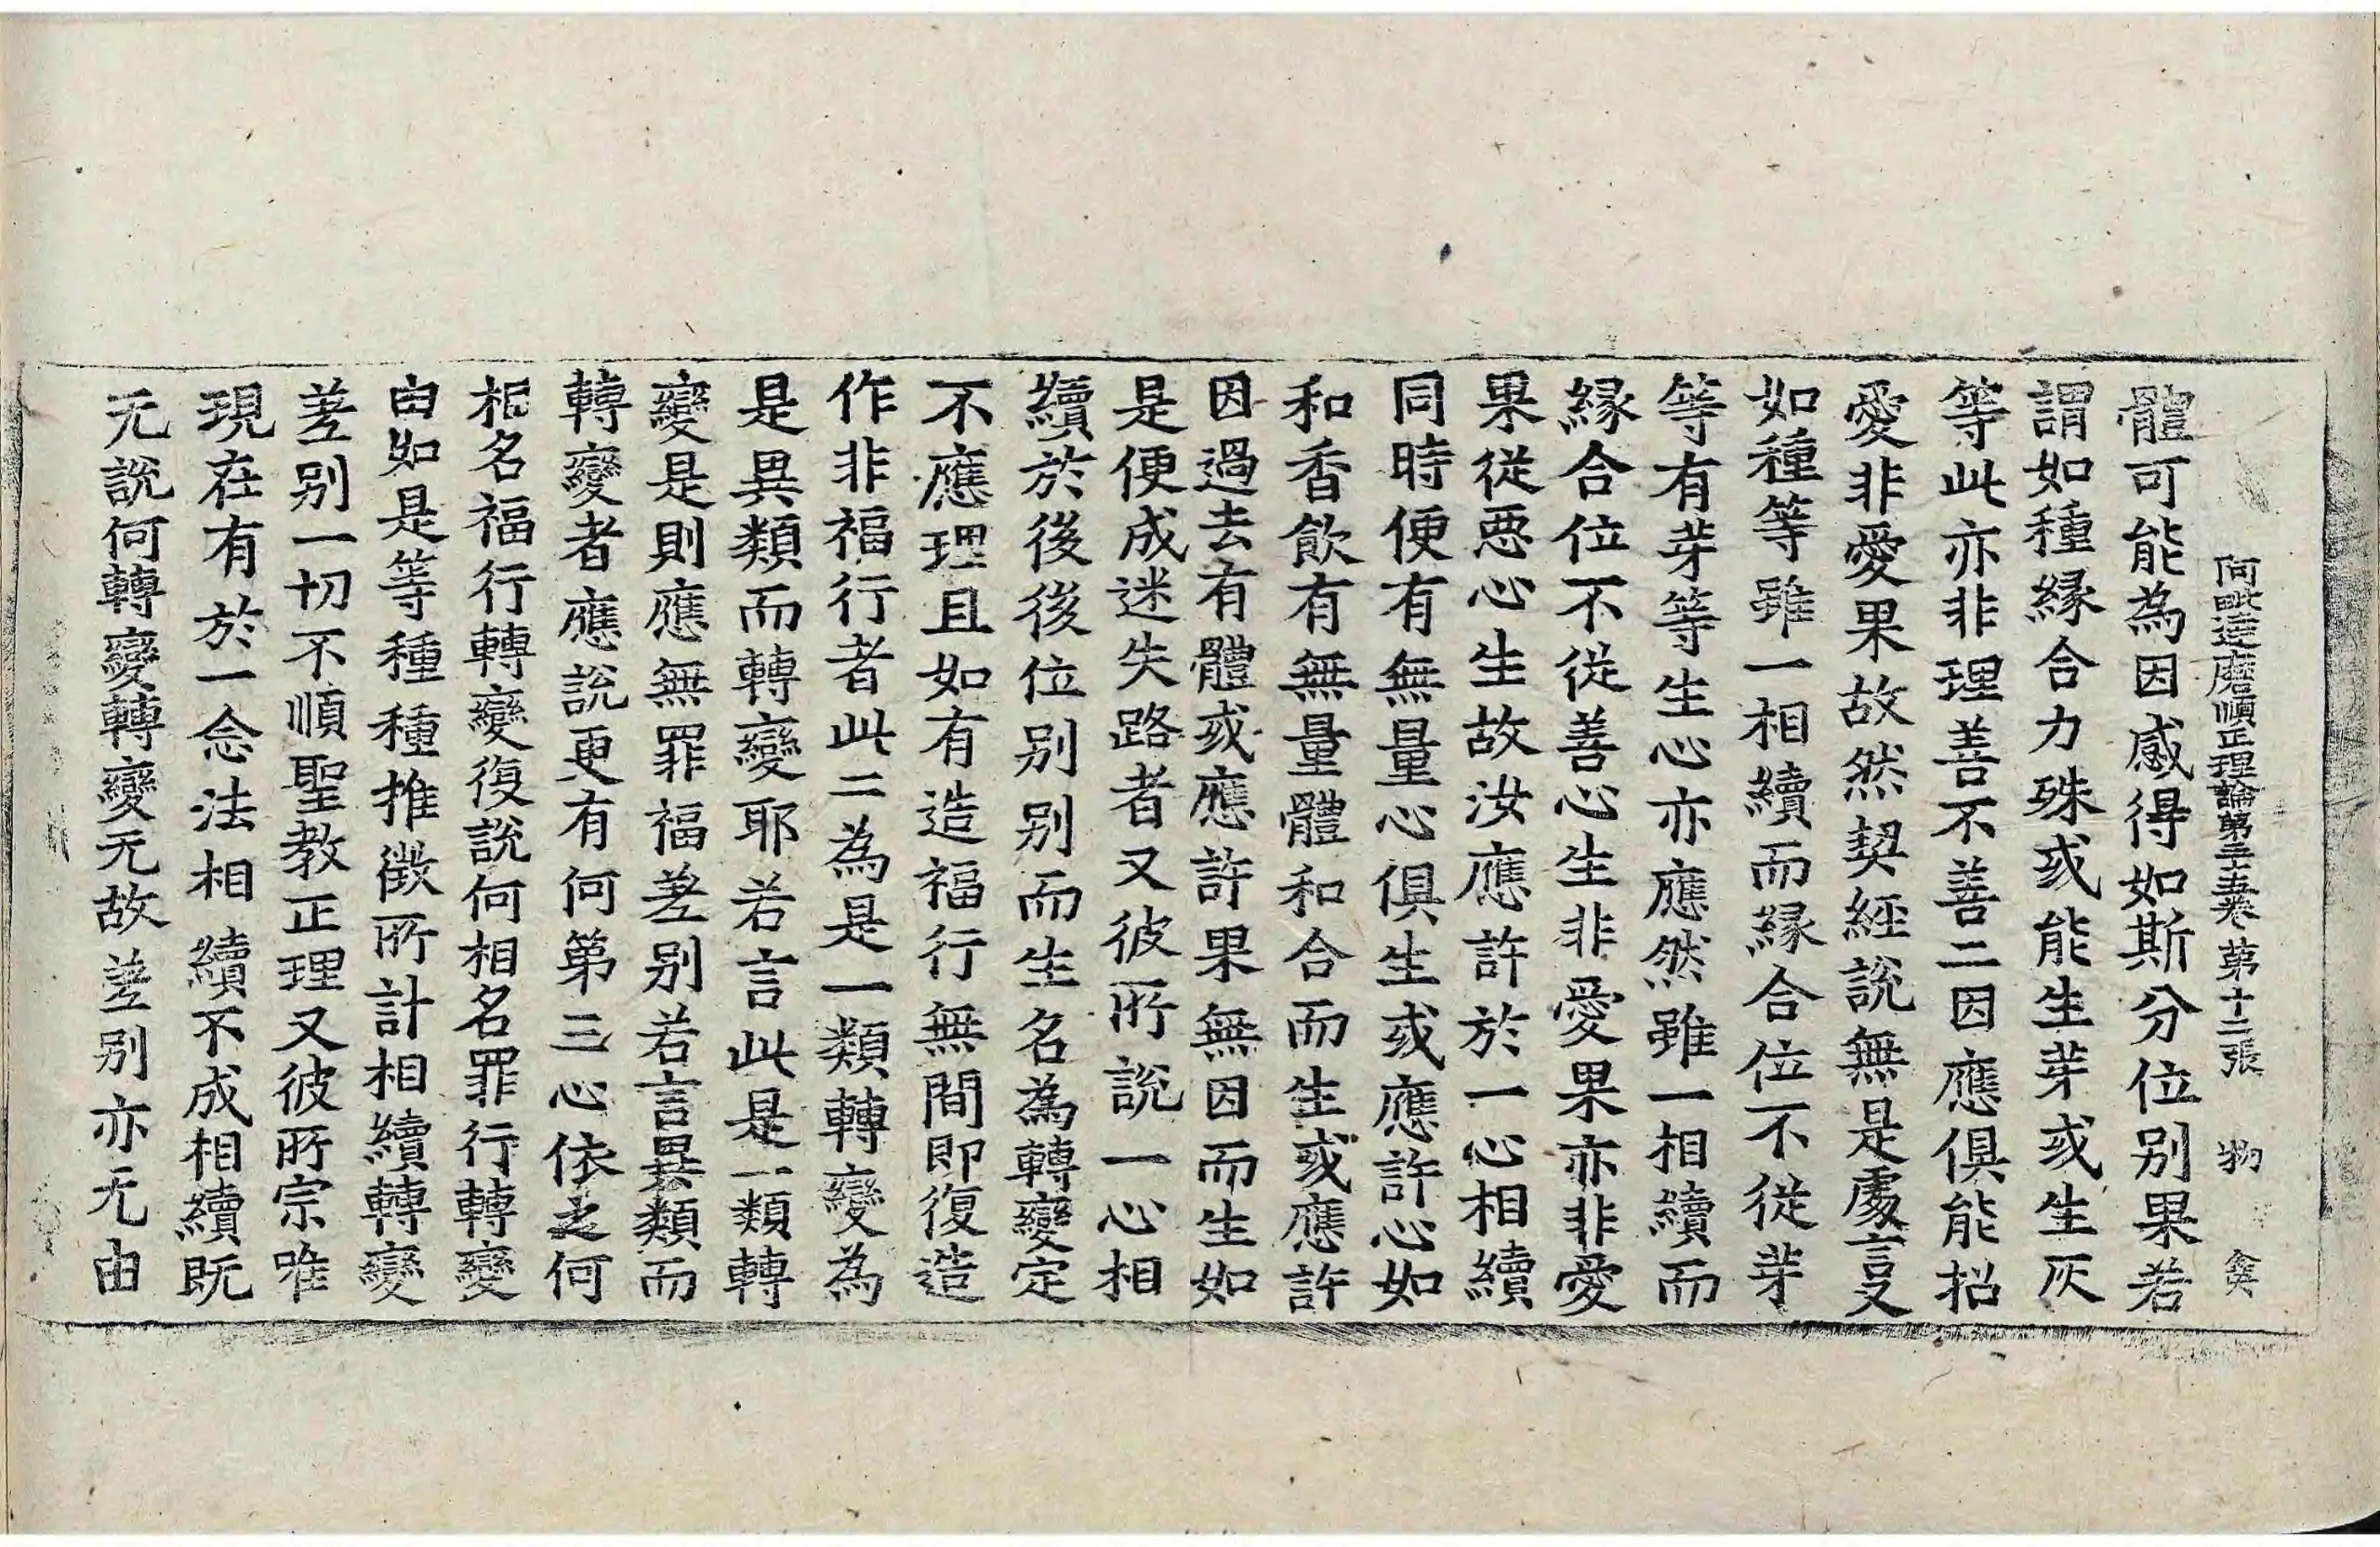 阿毗達磨順正理論第三十五卷 第十二張 物
體可能為因感得如斯分位別果若
謂如種緣合力殊或能生芽或生灰
等此亦非理善不善二因應俱能招
愛非愛果故然契經說無是處言又
如種等雖一相續而緣合位不從芽
等有芽等生心亦應然雖一相續而
緣合位不從善心生非愛果亦非愛
果從惡心生故汝應許於一心相續
同時便有無量心俱生或應許心如
和香飲有無量體和合而生或應許
因過去有體或應許果無因而生如
是便成迷失路者又彼所說一心相
續於後後位別別而生名為轉變定
不應理且如有造福行無間即復造
作非福行者此二為是一類轉變為
是異類而轉變耶若言此是一類轉
變是則應無罪福差別若言異類而
轉變者應說更有何第三心依之何
相名福行轉變復說何相名罪行轉變
由如是等種種推徵所計相續轉變
差別一切不順聖教正理又彼所宗唯
現在有於一念法相續不成相續既
无說何轉變轉變无故差別亦无由